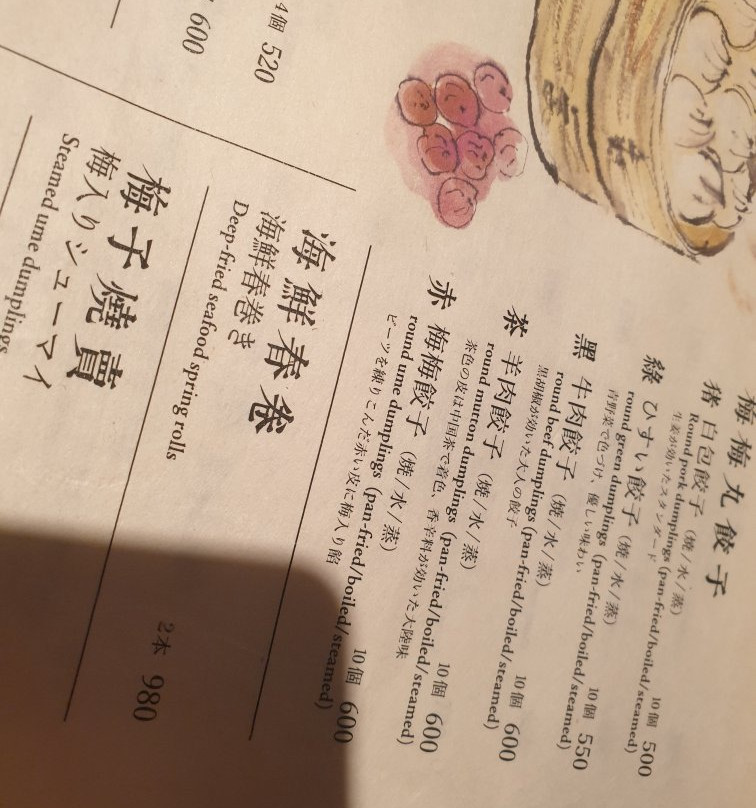 4個 520
600
梅梅丸餃子
猪 白包餃子 (焼/水/蒸) 10個 500
Round pork dumplings (pan-fried/boiled/steamed)
生姜が効いたスタンダード
綠 ひすい餃子 (焼/水/蒸) 10個 550
round green dumplings (pan-fried/boiled/steamed)
青野菜で色づけ、優しい味わい
黑 牛肉餃子 (焼/水/蒸) 10個 600
round beef dumplings (pan-fried/boiled/steamed)
黒胡椒が効いた大人の餃子
茶 羊肉餃子 (焼/水/蒸) 10個 600
round mutton dumplings (pan-fried/boiled/steamed)
茶色の皮は中国茶で着色、香辛料が効いた大陸味
赤 梅梅餃子 (焼/水/蒸) 10個 600
round ume dumplings (pan-fried/boiled/steamed)
ビーツを練りこんだ赤い皮に梅入り餡
海鮮春卷
海鮮春巻き 2本 980
Deep-fried seafood spring rolls
梅子燒賣
梅入りシューマイ
Steamed ume dumplings